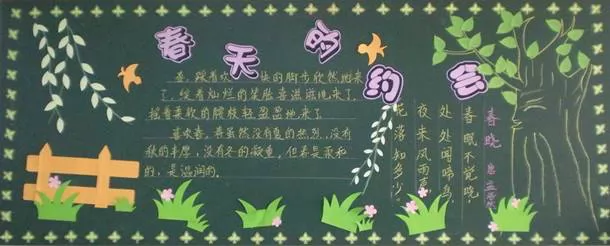 春天的约会
春，踩着欢快的脚步欣然地来
了，踩着灿烂的笑脸喜滋滋地来了，
摇着柔软的腰肢轻盈盈地来了
喜欢春，春虽然没有夏的热烈，没有
秋的丰厚，没有冬的凝重，但春是柔和
的，是温润的。
春晓 孟浩然
春眠不觉晓，
处处闻啼鸟，
夜来风雨声，
花落知多少。